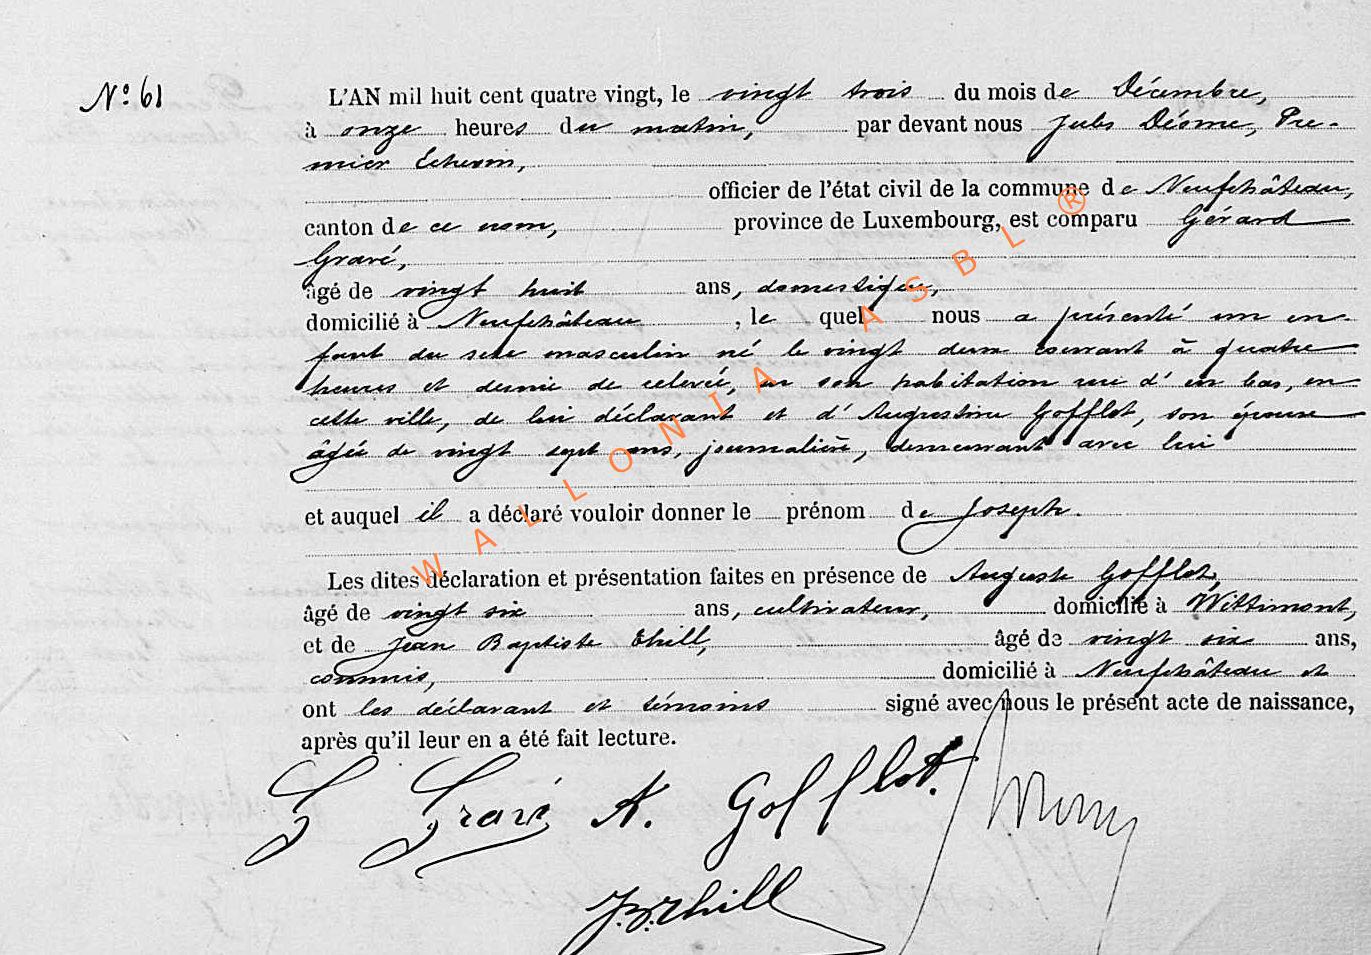 N° 61
L'AN mil huit cent quatre vingt, le vingt trois du mois de Décembre,
à onze heures du matin, par devant nous Jules Désme, Pre-
mier Echevin,
officier de l'état civil de la commune de Neufchâteau,
canton de ce nom, province de Luxembourg, est comparu Gérard
Gravé,
âgé de vingt huit ans, domestique,
domicilié à Neufchâteau, le quel nous a présenté un en-
fant du sexe masculin né le vingt deux courant à quatre
heures et demie de relevée, en son habitation rue d'en bas, en
cette ville, de lui déclarant et d'Augustine Gofflot, son épouse
âgée de vingt sept ans, journalière, demeurant avec lui
et auquel il a déclaré vouloir donner le prénom de Joseph.
Les dites déclaration et présentation faites en présence de Auguste Gofflot,
âgé de vingt six ans, cultivateur, domicilié à Wittimont,
et de Jean Baptiste Thill, âgé de vingt six ans,
commis, domicilié à Neufchâteau et
ont les déclarant et témoins signé avec nous le présent acte de naissance,
après qu'il leur en a été fait lecture.
G Gravé A. Gofflot.
J.B. Thill
WALLONIA ASBL ®